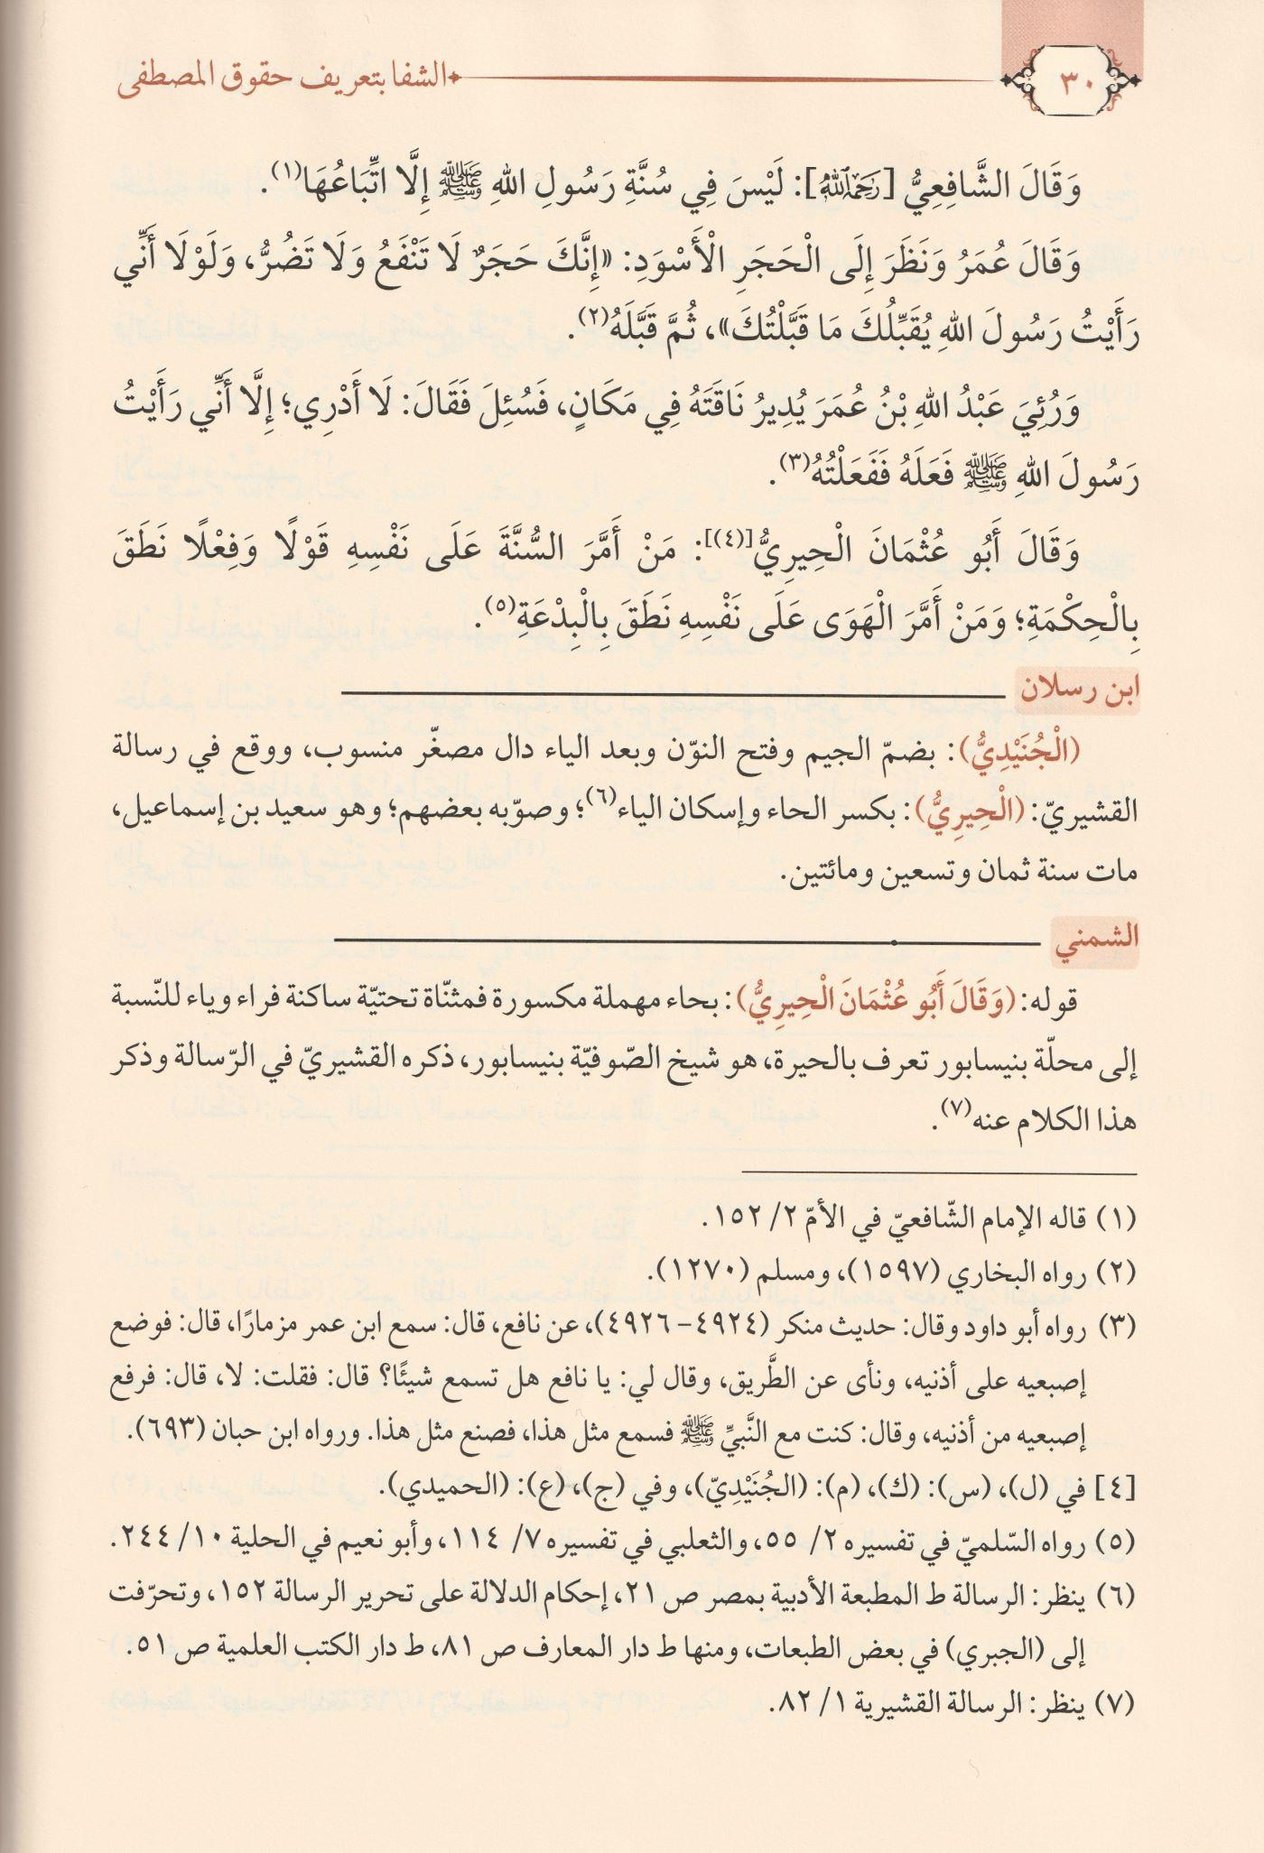 ٣٠ الشفا بتعريف حقوق المصطفى
وَقَالَ الشَّافِعِيُّ [رَحِمَهُ اللهُ]: لَيْسَ فِي سُنَّةِ رَسُولِ اللهِ ﷺ إِلَّا اتِّبَاعُهَا(١).
وَقَالَ عُمَرُ وَنَظَرَ إِلَى الْحَجَرِ الْأَسْوَدِ: «إِنَّكَ حَجَرٌ لَا تَنْفَعُ وَلَا تَضُرُّ، وَلَوْلَا أَنِّي
رَأَيْتُ رَسُولَ اللهِ يُقَبِّلُكَ مَا قَبَّلْتُكَ»، ثُمَّ قَبَّلَهُ(٢).
وَرُئِيَ عَبْدُ اللهِ بْنُ عُمَرَ يُدِيرُ نَاقَتَهُ فِي مَكَانٍ، فَسُئِلَ فَقَالَ: لَا أَدْرِي؛ إِلَّا أَنِّي رَأَيْتُ
رَسُولَ اللهِ ﷺ فَعَلَهُ فَفَعَلْتُهُ(٣).
وَقَالَ أَبُو عُثْمَانَ الْحِيرِيُّ[(٤)]: مَنْ أَمَّرَ السُّنَّةَ عَلَى نَفْسِهِ قَوْلًا وَفِعْلًا نَطَقَ
بِالْحِكْمَةِ؛ وَمَنْ أَمَّرَ الْهَوَى عَلَى نَفْسِهِ نَطَقَ بِالْبِدْعَةِ(٥).
ابن رسلان
(الْجُنَيْدِيُّ): بضمّ الجيم وفتح النوّن وبعد الياء دال مصغّر منسوب، ووقع في رسالة
القشيريّ: (الْحِيرِيُّ): بكسر الحاء وإسكان الياء(٦)؛ وصوّبه بعضهم؛ وهو سعيد بن إسماعيل،
مات سنة ثمان وتسعين ومائتين.
الشمني
قوله: (وَقَالَ أَبُو عُثْمَانَ الْحِيرِيُّ): بحاء مهملة مكسورة فمثنّاة تحتيّة ساكنة فراء وياء للنّسبة
إلى محلّة بنيسابور تعرف بالحيرة، هو شيخ الصّوفيّة بنيسابور، ذكره القشيريّ في الرّسالة وذكر
هذا الكلام عنه(٧).
(١) قاله الإمام الشّافعيّ في الأمّ ٢/ ١٥٢.
(٢) رواه البخاري (١٥٩٧)، ومسلم (١٢٧٠).
(٣) رواه أبو داود وقال: حديث منكر (٤٩٢٤- ٤٩٢٦)، عن نافع، قال: سمع ابن عمر مزمارًا، قال: فوضع
إصبعيه على أذنيه، ونأى عن الطَّريق، وقال لي: يا نافع هل تسمع شيئًا؟ قال: فقلت: لا، قال: فرفع
إصبعيه من أذنيه، وقال: كنت مع النَّبيِّ ﷺ فسمع مثل هذا، فصنع مثل هذا. ورواه ابن حبان (٦٩٣).
[٤] في (ل)، (س): (ك)، (م): (الجُنَيْدِيّ)، وفي (ج)، (ع): (الحميدي).
(٥) رواه السّلميّ في تفسيره ٢/ ٥٥، والثعلبي في تفسيره ٧/ ١١٤، وأبو نعيم في الحلية ١٠/ ٢٤٤.
(٦) ينظر: الرسالة ط المطبعة الأدبية بمصر ص ٢١، إحكام الدلالة على تحرير الرسالة ١٥٢، وتحرّفت
إلى (الجبري) في بعض الطبعات، ومنها ط دار المعارف ص ٨١، ط دار الكتب العلمية ص ٥١.
(٧) ينظر: الرسالة القشيرية ١/ ٨٢.